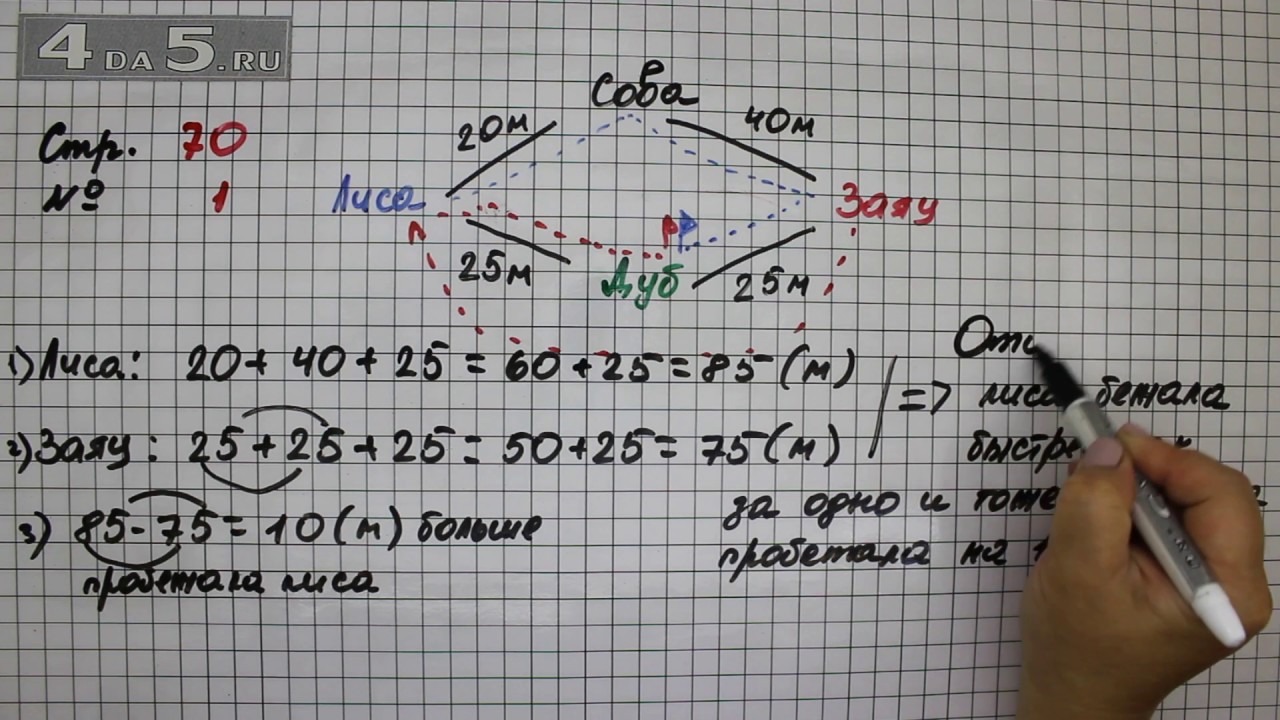 4DA5.RU
Стр. 70
№ 1
Сова
20м
40м
Лиса
Заяц
25м
Дуб
25м
1) Лиса: 20+40+25=60+25=85(м)
2) Заяц: 25+25+25=50+25=75(м)
3) 85-75=10(м) больше
пробежала лиса
=> лиса бежала
за одно и тоже
пробежала на